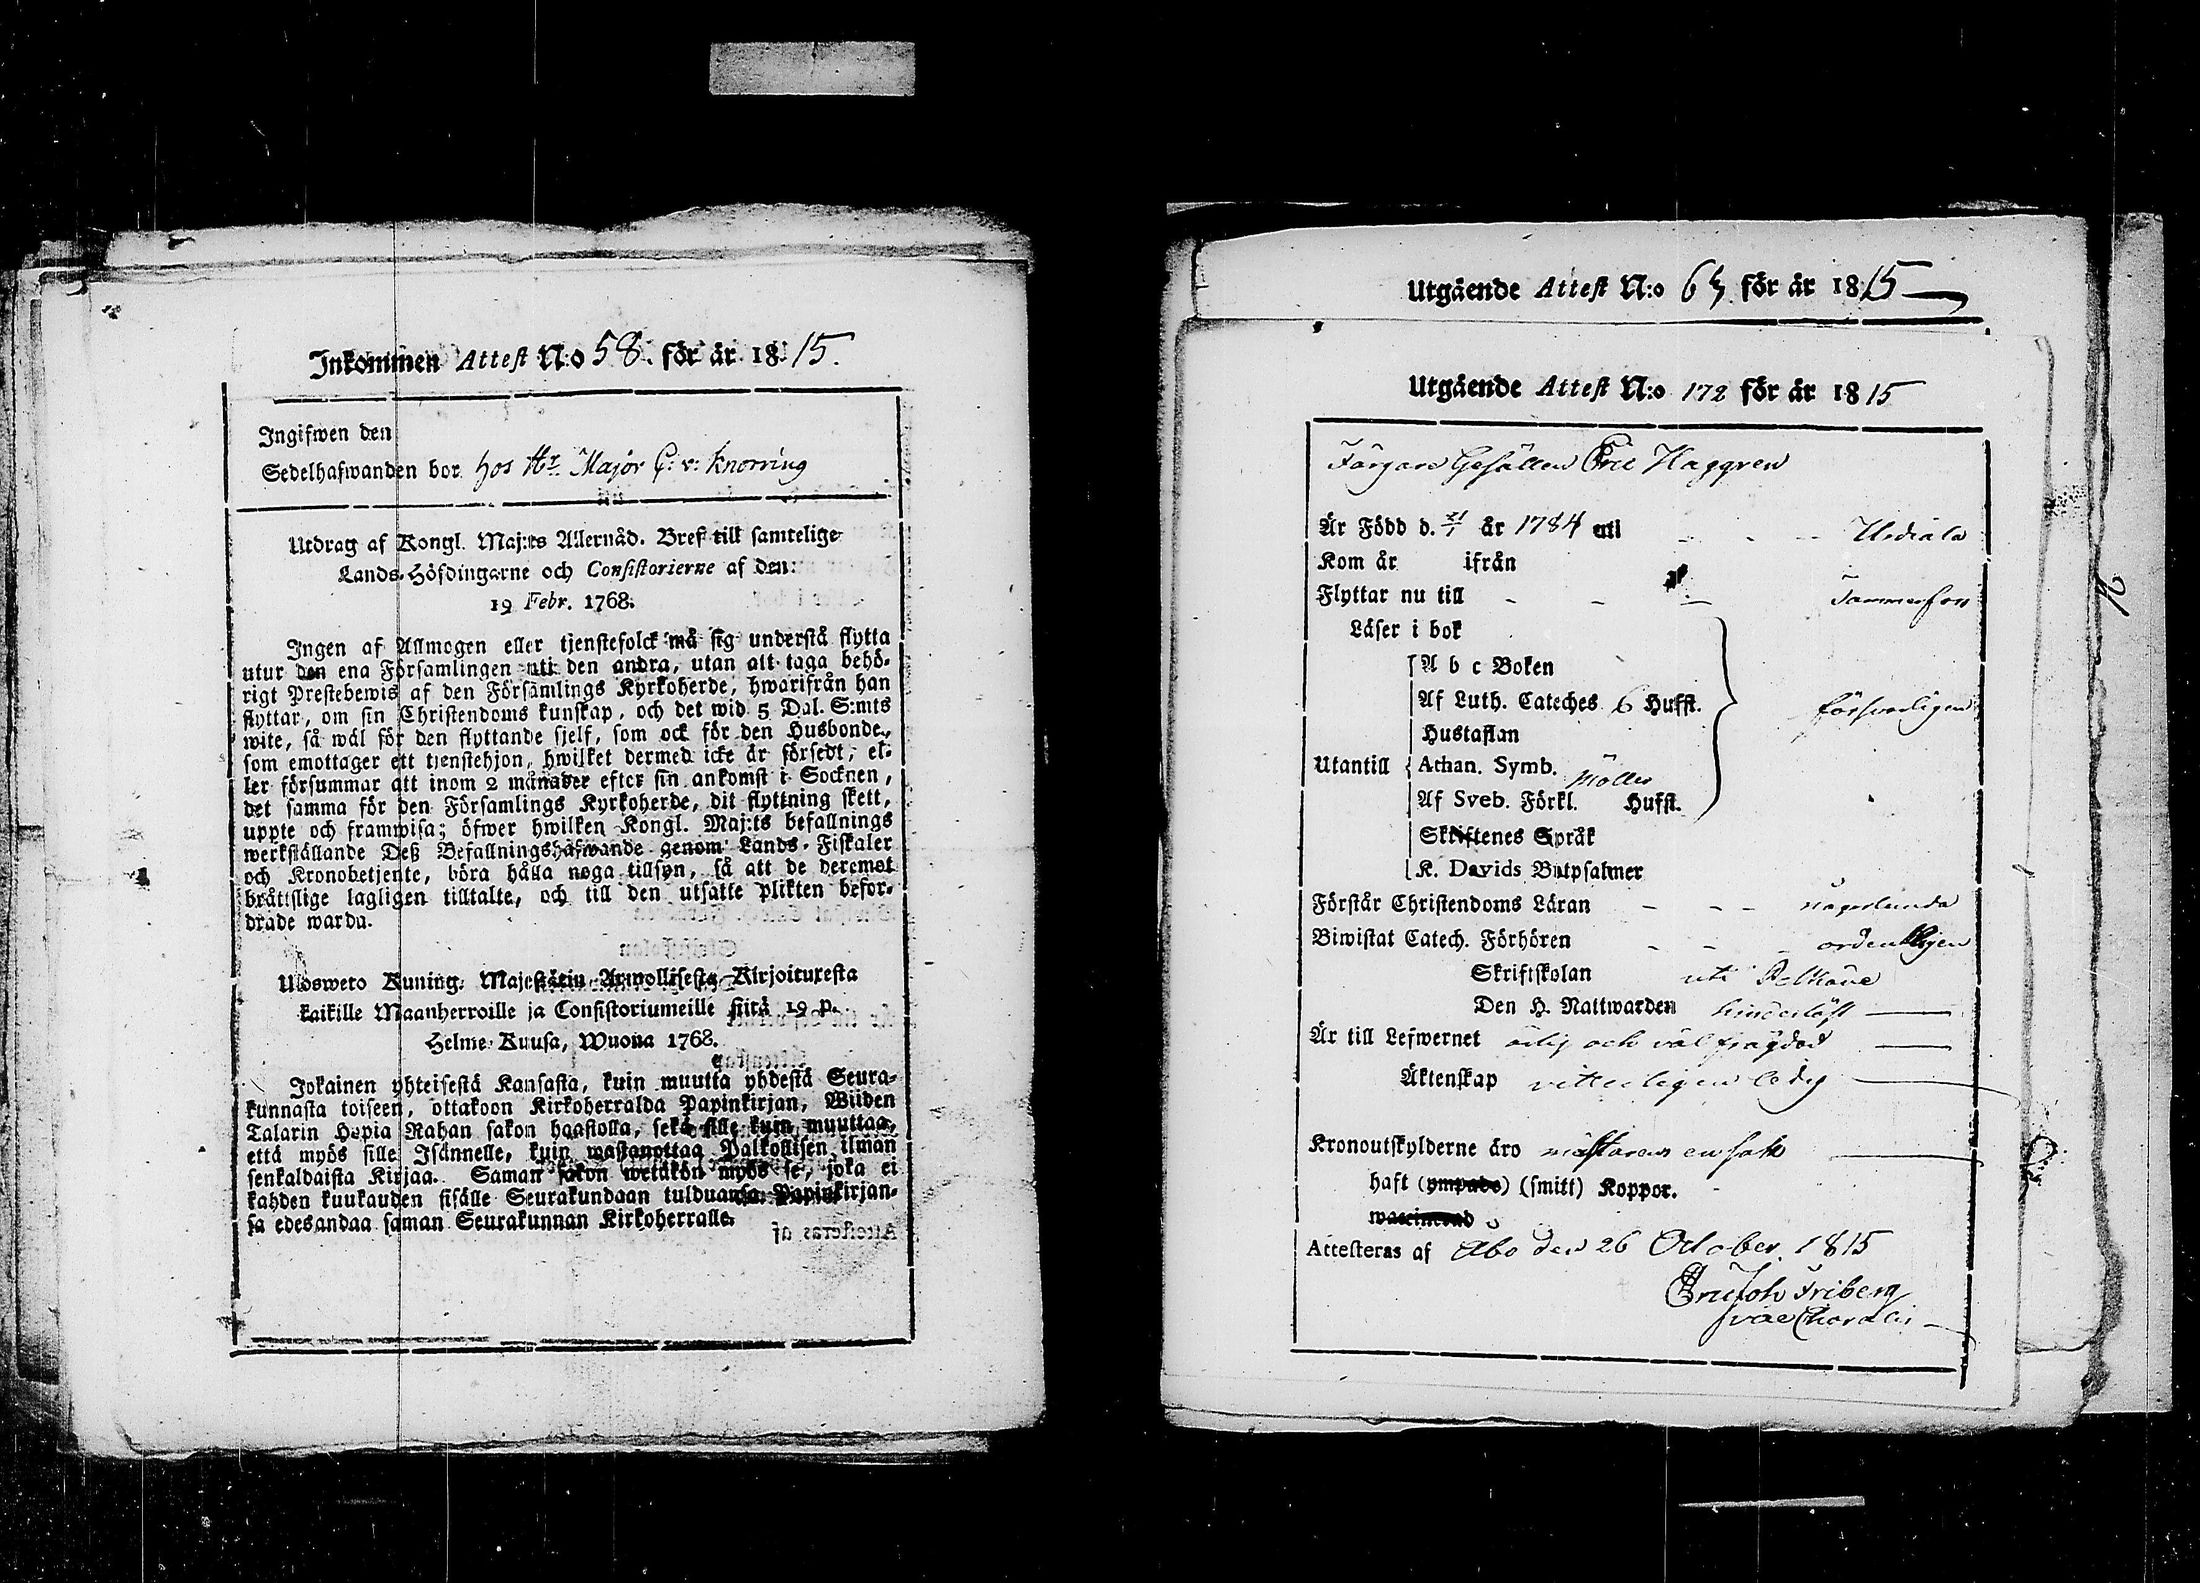 Inkommen Attest N:o 58. för år 1815.
Ingifwen den
Sedelhafwanden bor hos Hr Major C: v: Knorring
Utdrag af Kongl. Maj:ts Allernåd. Bref till samtelige
Lands-Höfdingarne och Consistorierne af den:
19 Febr. 1768.
Ingen af Allmogen eller tjenstefolck må sig understå flytta
utur den ena Församlingen uti den andra, utan att taga behö-
rigt Prestebewis af den Församlings Kyrkoherde, hwarifrån han
flyttar, om sin Christendoms kunskap, och det wid 5 Dal. S:mts
wite, så wäl för den flyttande sjelf, som ock för den Husbonde,
som emottager ett tjenstehjon, hwilket dermed icke är försedt, el-
ler försummar att inom 2 månader efter sin ankomst i Socknen,
det samma för den Församlings Kyrkoherde, dit flyttning skett,
uppte och framwisa; öfwer hwilken Kongl. Maj:ts befallnings
werkställande Deß Befallningshafwande genom Lands-Fiskaler
och Kronobetjente, böra hålla noga tillsyn, så att de deremot
bråttslige lagligen tilltalte, och till den utsatte plikten befor-
drade warda.
Uldsweto Kuning. Majestätin Armollisesta Kirjoituxesta
kaikille Maanherroille ja Consistoriumeille siitä 19 p.
Helme-Kuusa, Wuona 1768.
Jokainen yhteisestä Kansasta, kuin muutta yhdestä Seura-
kunnasta toiseen, ottakoon Kirkoherralda Papinkirjan, Wiiden
Talarin Hopia Rahan sakon haastolla, sekä sille kuin muuttaa,
että myös sille Isännelle, kuin wastanottaa Palkollisen ilman
senkaldaista Kirjaa. Saman sakon wetäkön myös se, joka ei
kahden kuukauden sisälle Seurakundaan tulduansa Papinkirjan-
sa edesandaa saman Seurakunnan Kirkoherralle.
Utgående Attest N:o 63. för år 1815
Utgående Attest N:o 172 för år 1815
Färgare Gesällen Eric Haggren
Är Född d. 21/1 år 1784 uti - - - Urdiala
Kom år ifrån
Flyttar nu till - - - Tammerfors
Läser i bok
A b c Boken
Af Luth. Cateches 6 Hufst. försvarligen
Hustaflan
Utantill Athan. Symb.
Möllers
Af Sveb. Förkl. Hufst.
Skriftenes Språk
K. Davids Botpsalmer
Förstår Christendoms Läran - - - någorlunda
Biwistat Catech. Förhören - - - ordentligen
Skriftskolan uti Pelkäne
Den H. Nattwarden hinderlöst
Är till Lefwernet ärlig och väl frägdad
Äktenskap vitterligen ledig
Kronoutskylderne äro mästarens ensak
haft (ympade) (smitt) Koppor.
waccinerad
Attesteras af Åbo den 26 October 1815
Joh Friberg